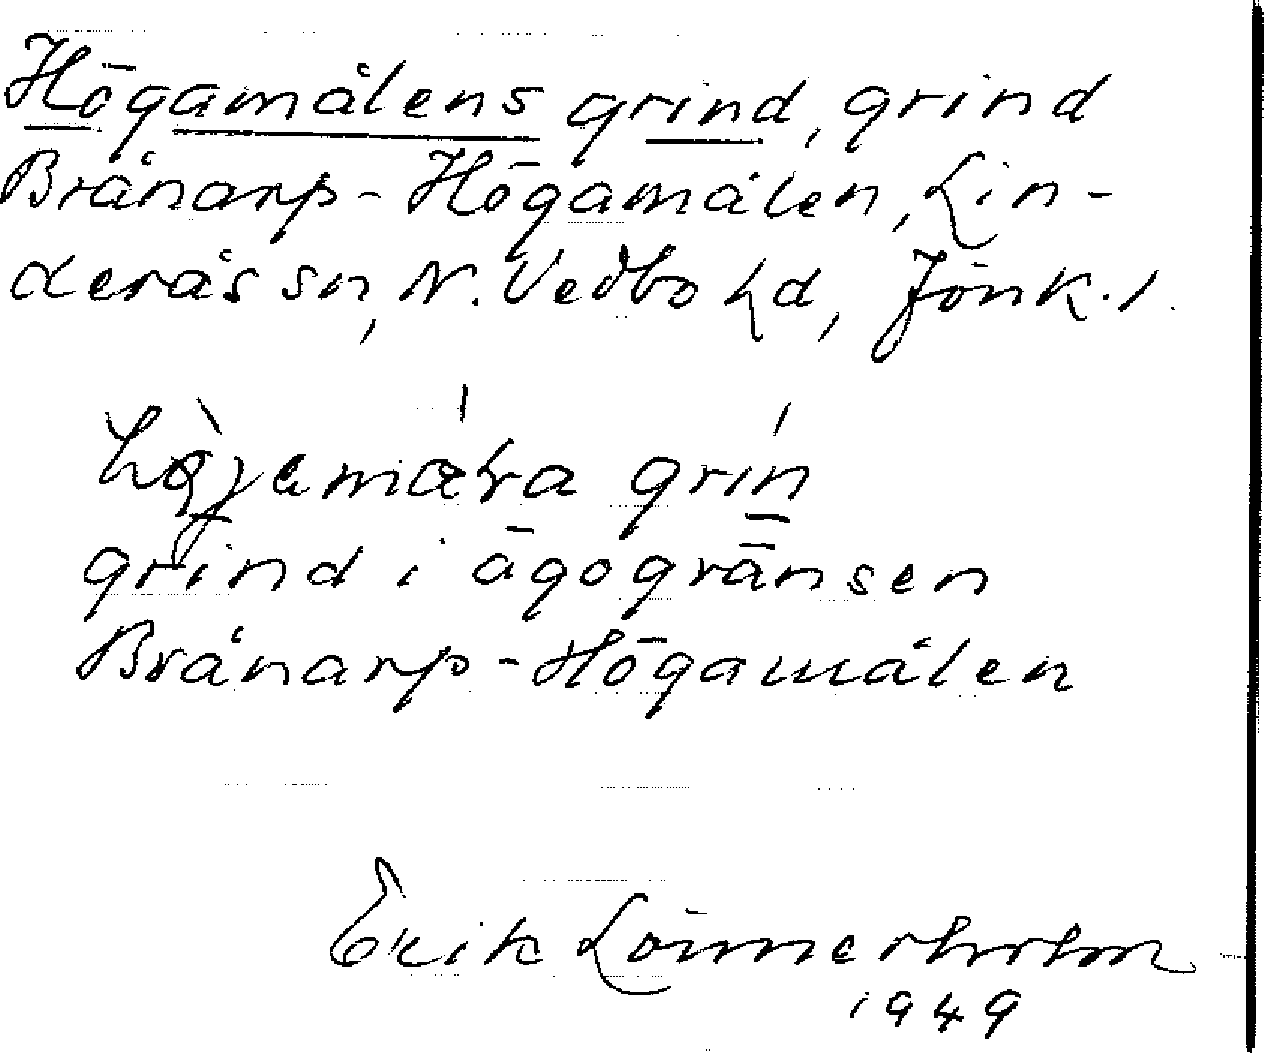 Högamålens grind, grind
Brånarp - Högamålen, Lin-
derås sn, N. Vedbo hd, Jönk. l.
grin
grind i ägogränsen
Brånarp - Högamålen
Erik Lönnerholm
1949